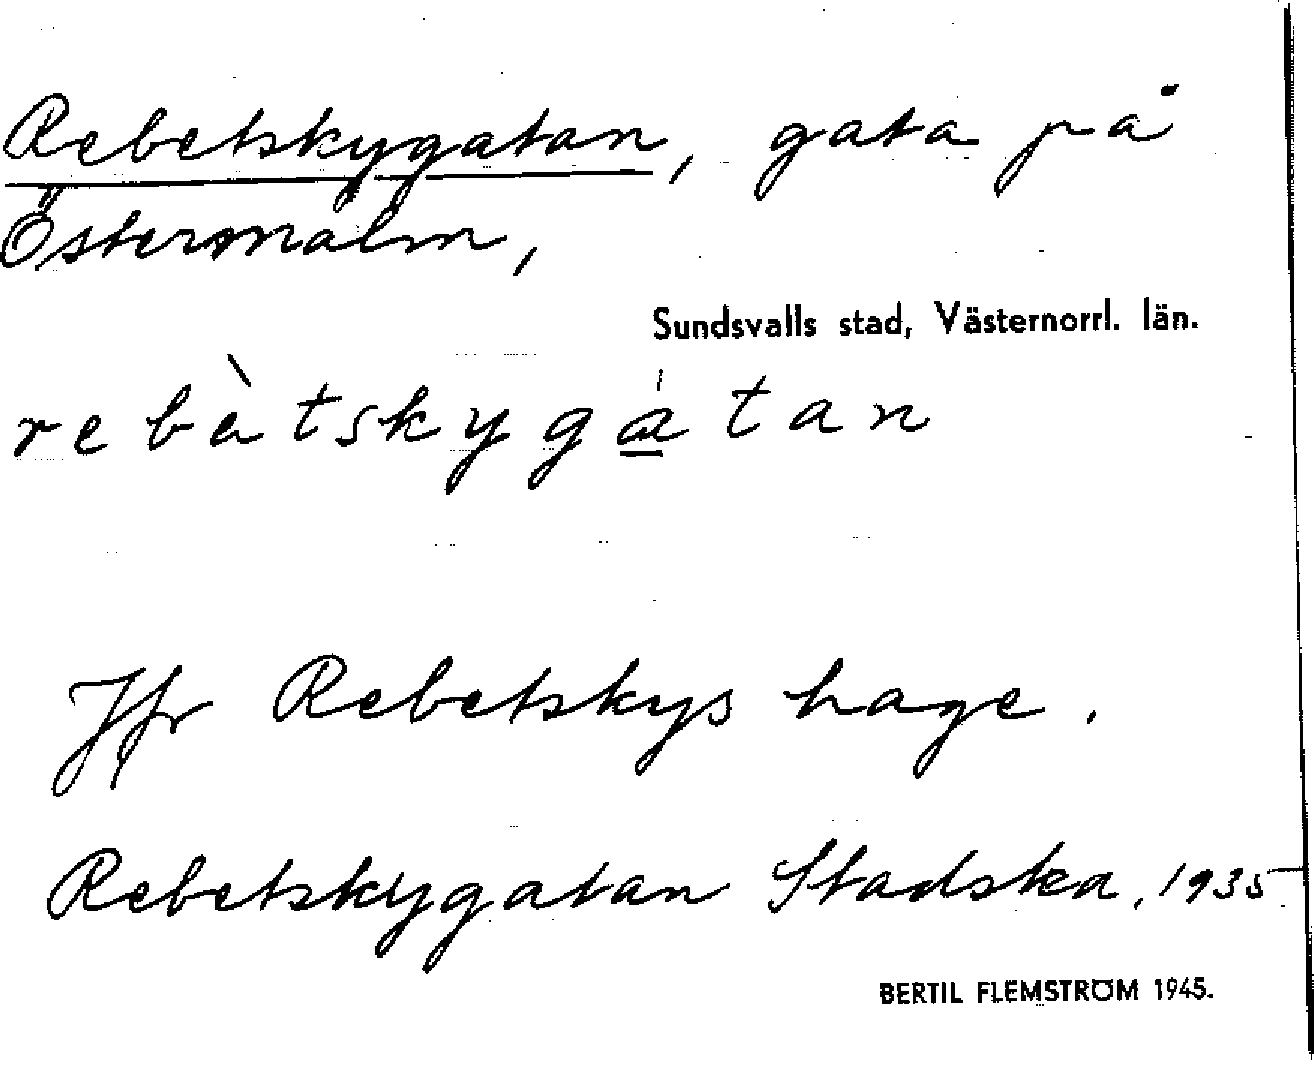 Rebetskygatan, gata på
Östermalm,
Sundsvalls stad, Västernorrl. län.
rebètskygátan
Jfr Rebetskys hage.
Rebetskygatan Stadska. 1935
BERTIL FLEMSTRÖM 1945.